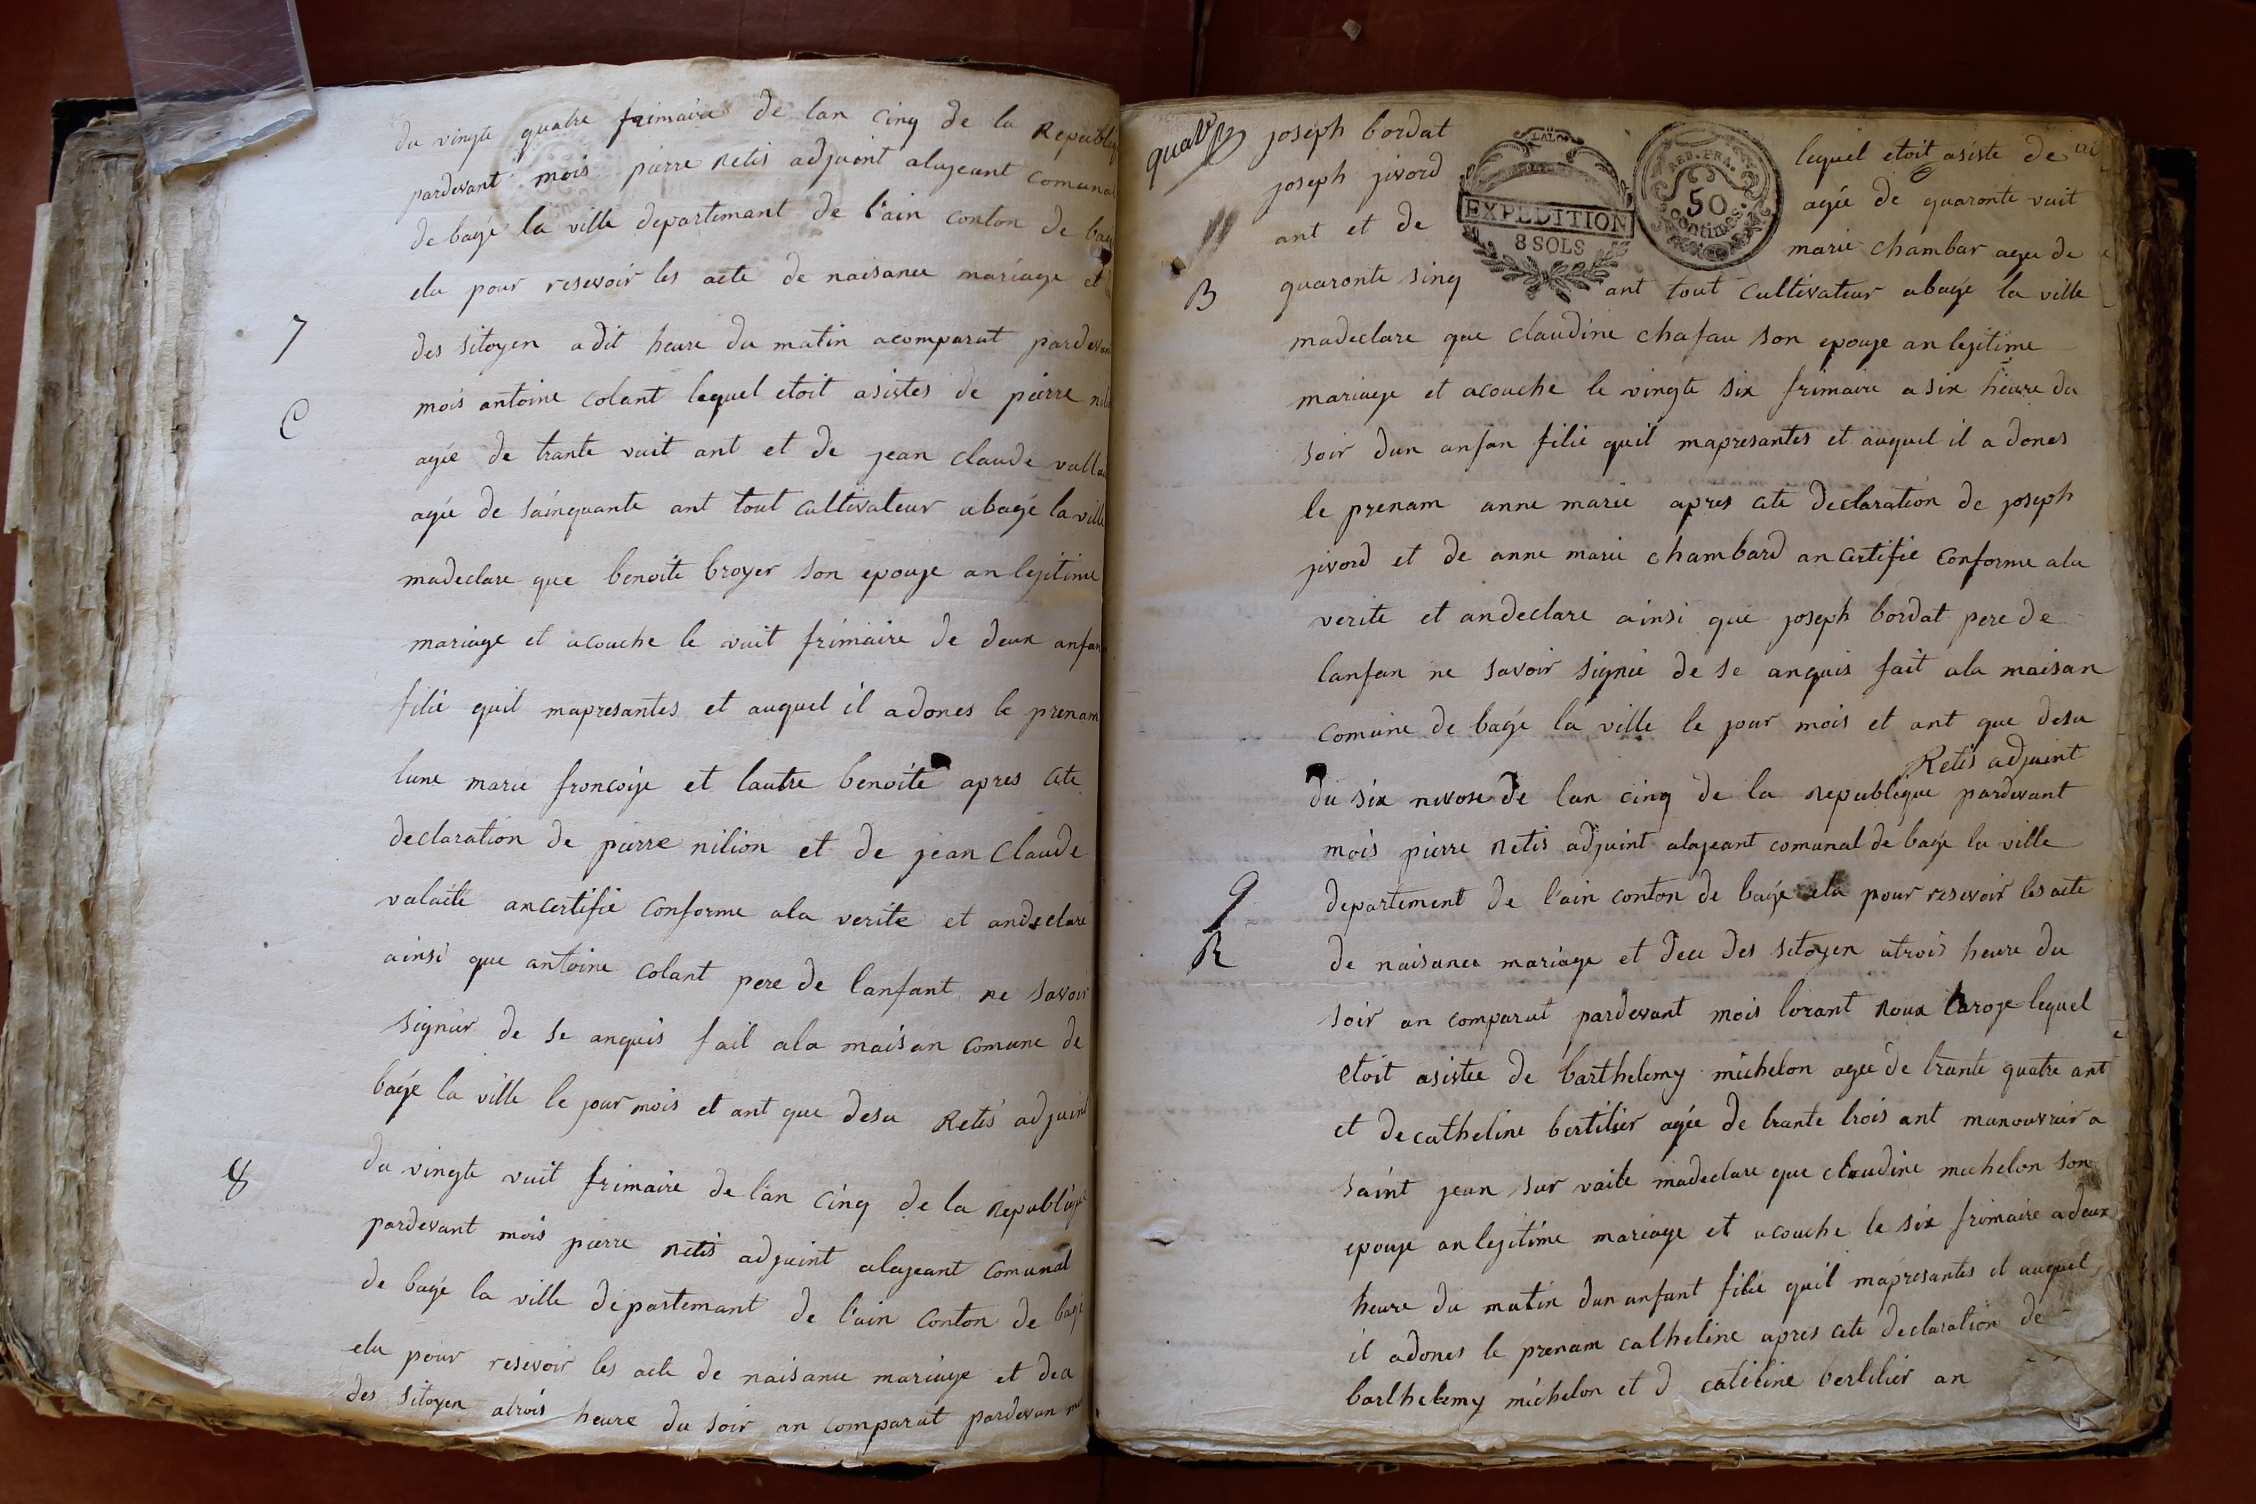 du vingte quatre frimaire de lan cinq de la Republiq
pardevant mois pierre Retis adjuint alajeant comunal
de bagé la ville departemant de l'ain conton de bag
elu pour resevoir les acte de naisance mariage et
7
des sitoyen a dit heure du matin acomparut pardevan
C
mois antoine colant lequel etoit asistes de pierre nili
agée de trante vuit ant et de jean claude valla
agée de sainquante ant tout cultivateur abagé la ville
madeclare que benoite broyer son epouje an lejitime
mariage et acouche le vuit frimaire de deux anfan
filie quil mapresantes et auquel il adones le prenam
lune marie froncoije et lautre benoite apres cete
declaration de pierre nilion et de jean claude
valaite ancertifie conforme ala verite et andeclare
ainsi que antoine colant pere de lanfant ne savoir
signiér de se anquis fait ala maisan comune de
bage la ville le jour mois et ant que desu Retis adjuint
8
du vingte vuit frimaire de lan cinq de la Republiq
pardevant mois pierre Retis adjuint alajeant comunal
de bagé la ville departemant de l'ain conton de bagé
elu pour resevoir les acte de naisance mariage et dea
des sitoyen atrois heure du soir an comparut pardevan moi
joseph bordat
lequel etoit asiste de
joseph jivord
agée de quaronte vuit
ant et de
marie chambar agee de
quaronte sinq
ant tout cultivateur abagé la ville
EXPEDITION
8 SOLS
REP. FRA.
50
Centimes
B
madeclare que claudine chafau son epouje an lejitime
mariage et acouche le vingte six frimaire a six heure du
soir dun anfan filie quil mapresantes et auquel il a dones
le prenam anne marie apres cete declaration de joseph
jivord et de anne marie chambard ancertifie conforme ala
verite et andeclare ainsi que joseph bordat pere de
lanfan ne savoir signié de se anquis fait ala maisan
comune de bagé la ville le jour mois et ant que desu
Retis adjuint
du six nivose de lan cinq de la Republique pardevant
mois pierre Retis adjuint alajeant comunal de bagé la ville
9
departement de l'ain conton de bagé elu pour resevoir les acte
R
de naisance mariage et dece des sitoyen atrois heure du
soir an comparut pardevant mois lorant Roux laroze lequel
etoit asistee de barthelemy michelon agee de trante quatre ant
et de catheline bertilier agée de trante trois ant manouvrier a
saint jean sur vaile madeclare que claudine michelon son
epouje an lejitime mariage et acouche le six frimaire a deux
heure du matin dun anfant filie quil mapresantes et auquel
il adones le prenam catheline apres cete declaration de
barthelemy michelon et d cateline bertilier an